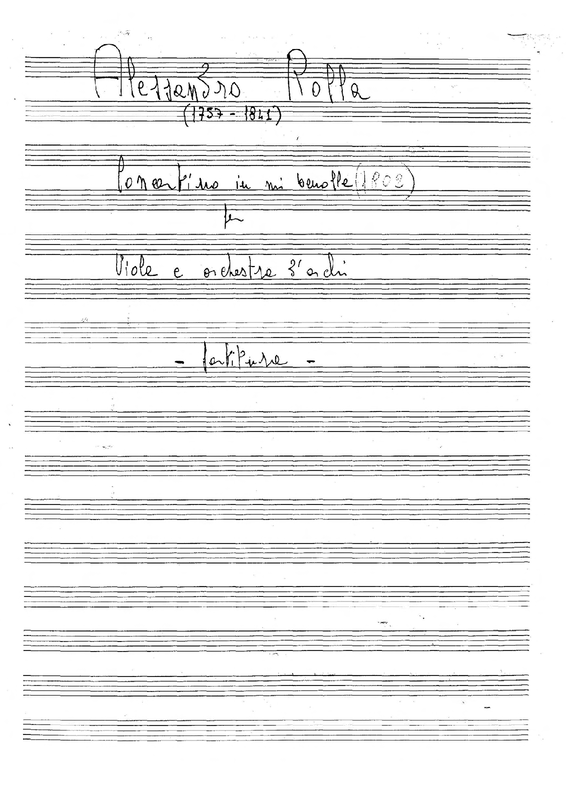 Alessandro Rolla
(1757 - 1841)
Concertino in mi bemolle (1802)
per
Viola e orchestra d'archi
- Partitura -